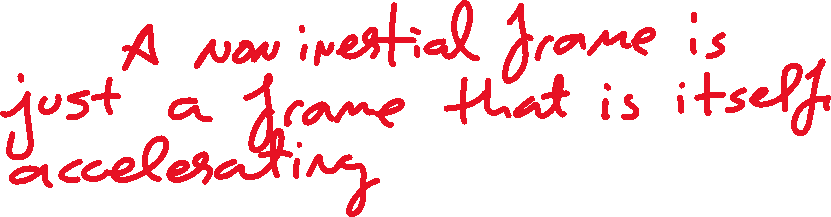 A non inertial frame is
just a frame that is itself
accelerating